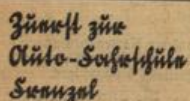 Zuerst zur
Auto-Fahrschule
Frenzel